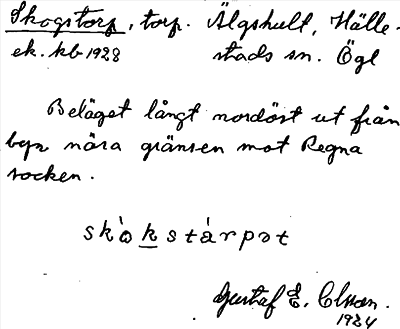 Skogstorp, torp. Älgshult, Hälle-
ek. kb 1928 stads sn. Ögl
Beläget långt nordöst ut från
byn nära gränsen mot Regna
socken.
Gustaf E. Olsson.
1934